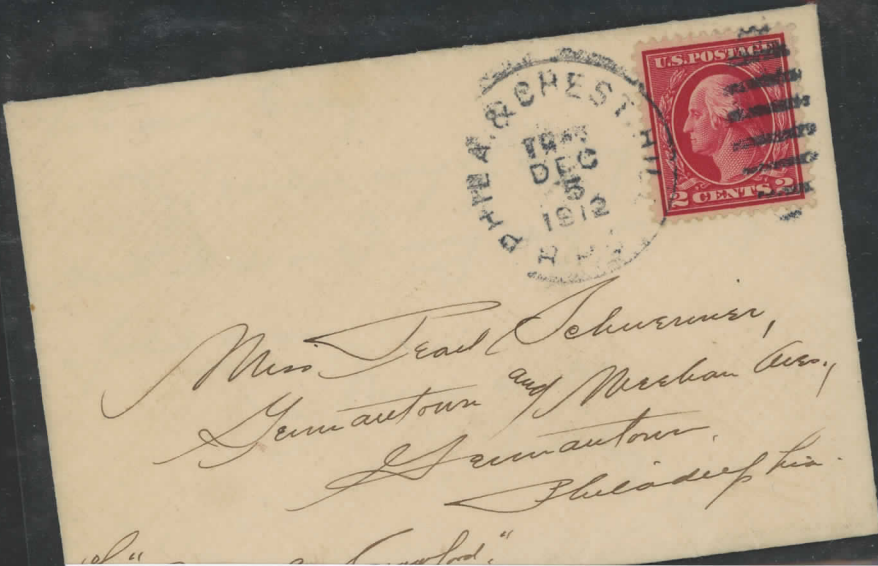 U.S. POSTAGE
2 CENTS 2
PHILA. & CHEST. HILL
DEC
5
1912
R.P.O.
Miss Pearl Schwenner,
Germantown and Meehan Aves.,
Germantown
Philadelphia.